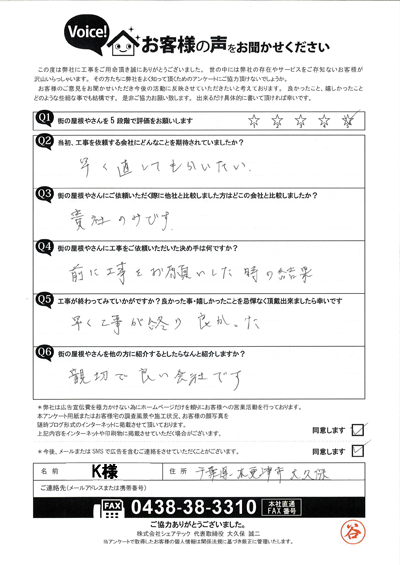 Voice!
お客様の声をお聞かせください
この度は弊社に工事をご用命頂き誠にありがとうございました。 世の中には弊社の存在やサービスをご存知ないお客様が
沢山いらっしゃいます。 その方たちに弊社をよく知って頂くためのアンケートにご協力頂けないでしょうか。
お客様のご意見をお聞かせいただき今後の活動に反映させていただきたいと考えております。 良かったこと、嬉しかったこと
どのような些細な事でも結構です。 是非ご協力お願い致します。 出来るだけ具体的に書いて頂ければ幸いです。
Q1 街の屋根やさんを5段階で評価をお願いします ☆ ☆ ☆ ☆ ☆
Q2 当初、工事を依頼する会社にどんなことを期待されていましたか?
早く直してもらいたい.
Q3 街の屋根やさんにご依頼いただく際に他社と比較しました方はどこの会社と比較しましたか?
貴社のみです.
Q4 街の屋根やさんに工事をご依頼いただいた決め手は何ですか?
前に工事をお願いした時の結果
Q5 工事が終わってみていかがですか?良かった事・嬉しかったことを忌憚なく頂戴出来ましたら幸いです
早く工事が終り良かった
Q6 街の屋根やさんを他の方に紹介するとしたらなんと紹介しますか?
親切で良い会社です
*弊社は広告宣伝費を極力かけない為にホームページだけを頼りにお客様への営業活動を行っております。
本アンケート用紙またはお客様宅の調査風景や施工状況、お客様の顔写真を
随時ブログ形式のインターネットに掲載させて頂いております。
上記内容をインターネットや印刷物に掲載させていただく場合がございます。 同意します ✓
*今後、メールまたはSMSで広告を含むご連絡をさせていただくことがございます。 同意します ✓
名前 K様 住所 千葉県木更津市大久保
ご連絡先(メールアドレスまたは携帯番号)
FAX 0438-38-3310 本社直通 FAX番号
ご協力ありがとうございました。
株式会社シェアテック 代表取締役 大久保 誠二
当アンケートで取得したお客様の個人情報は関係法規に基づき厳正に管理いたします。
谷